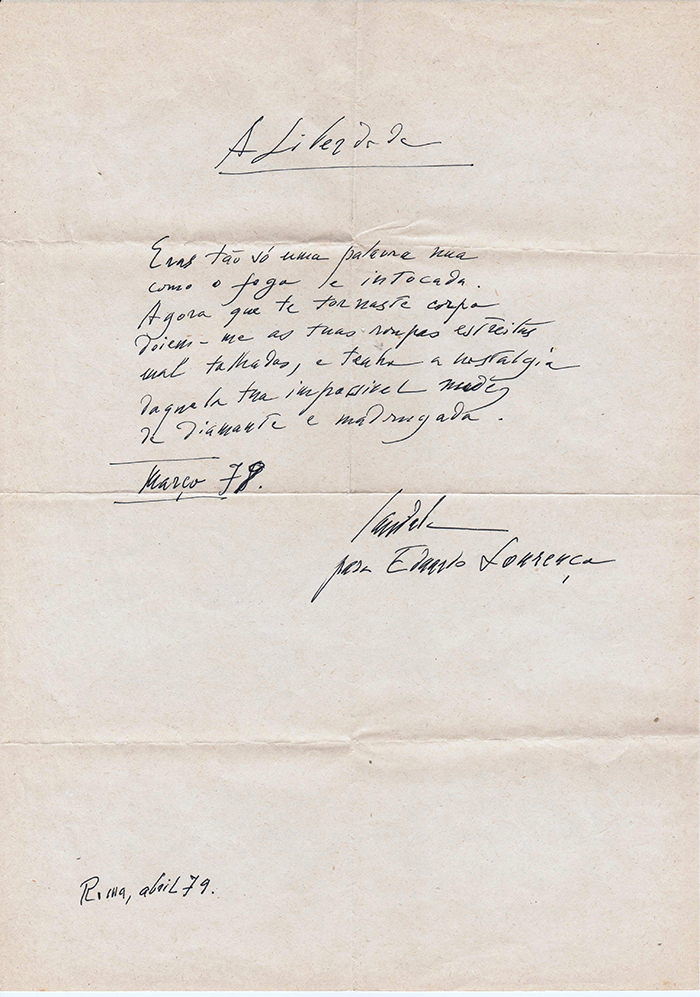 A Liberdade
Eras tão só uma palavra nua
como o fogo e intocada.
Agora que te tornaste corpo
doiem-me as tuas roupas estreitas
mal talhadas, e tenho a nostalgia
daquela tua impossível nudez
de diamante e madrugada.
Março 78.
para Eduardo Lourenço
Roma, abril 79.